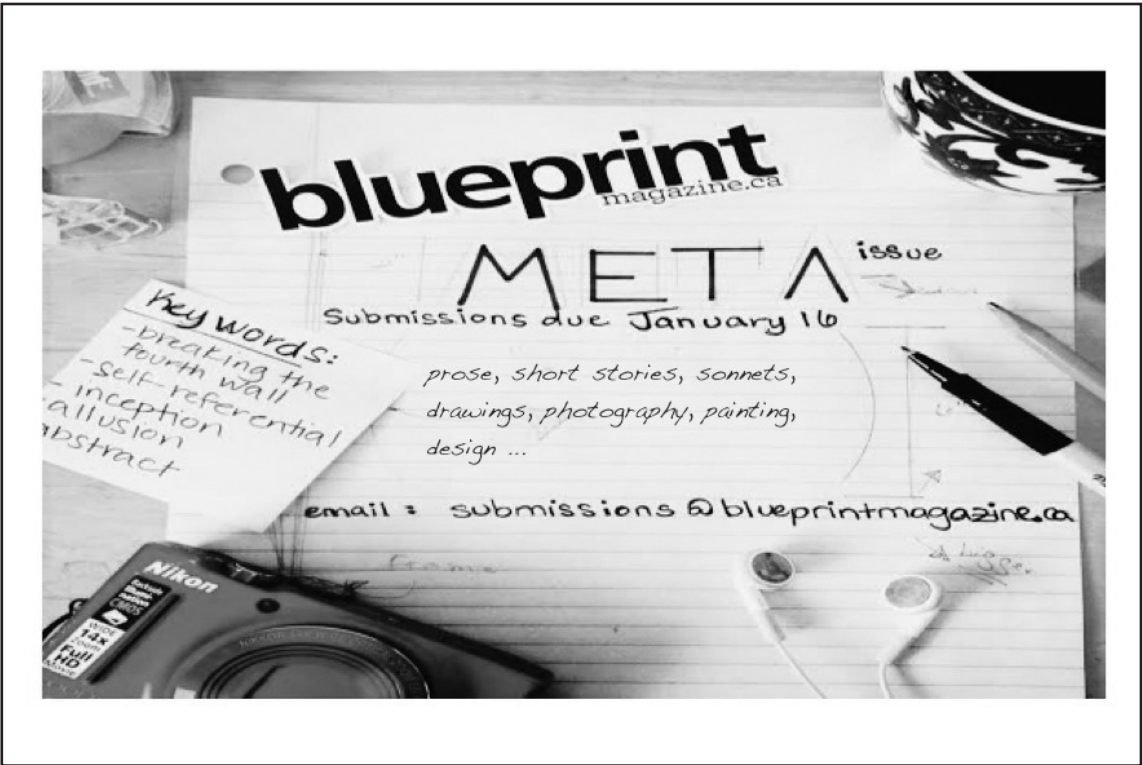 blueprint
magazine.ca
META issue
Submissions due January 16
Key words:
-breaking the
fourth wall
-self-referential
-inception
-allusion
abstract
prose, short stories, sonnets,
drawings, photography, painting,
design ...
email : submissions @ blueprintmagazine.ca
Frame
Nikon
Backside
Illumi-
nation
CMOS
WIDE
14x
Zoom
Full
HD
Movie